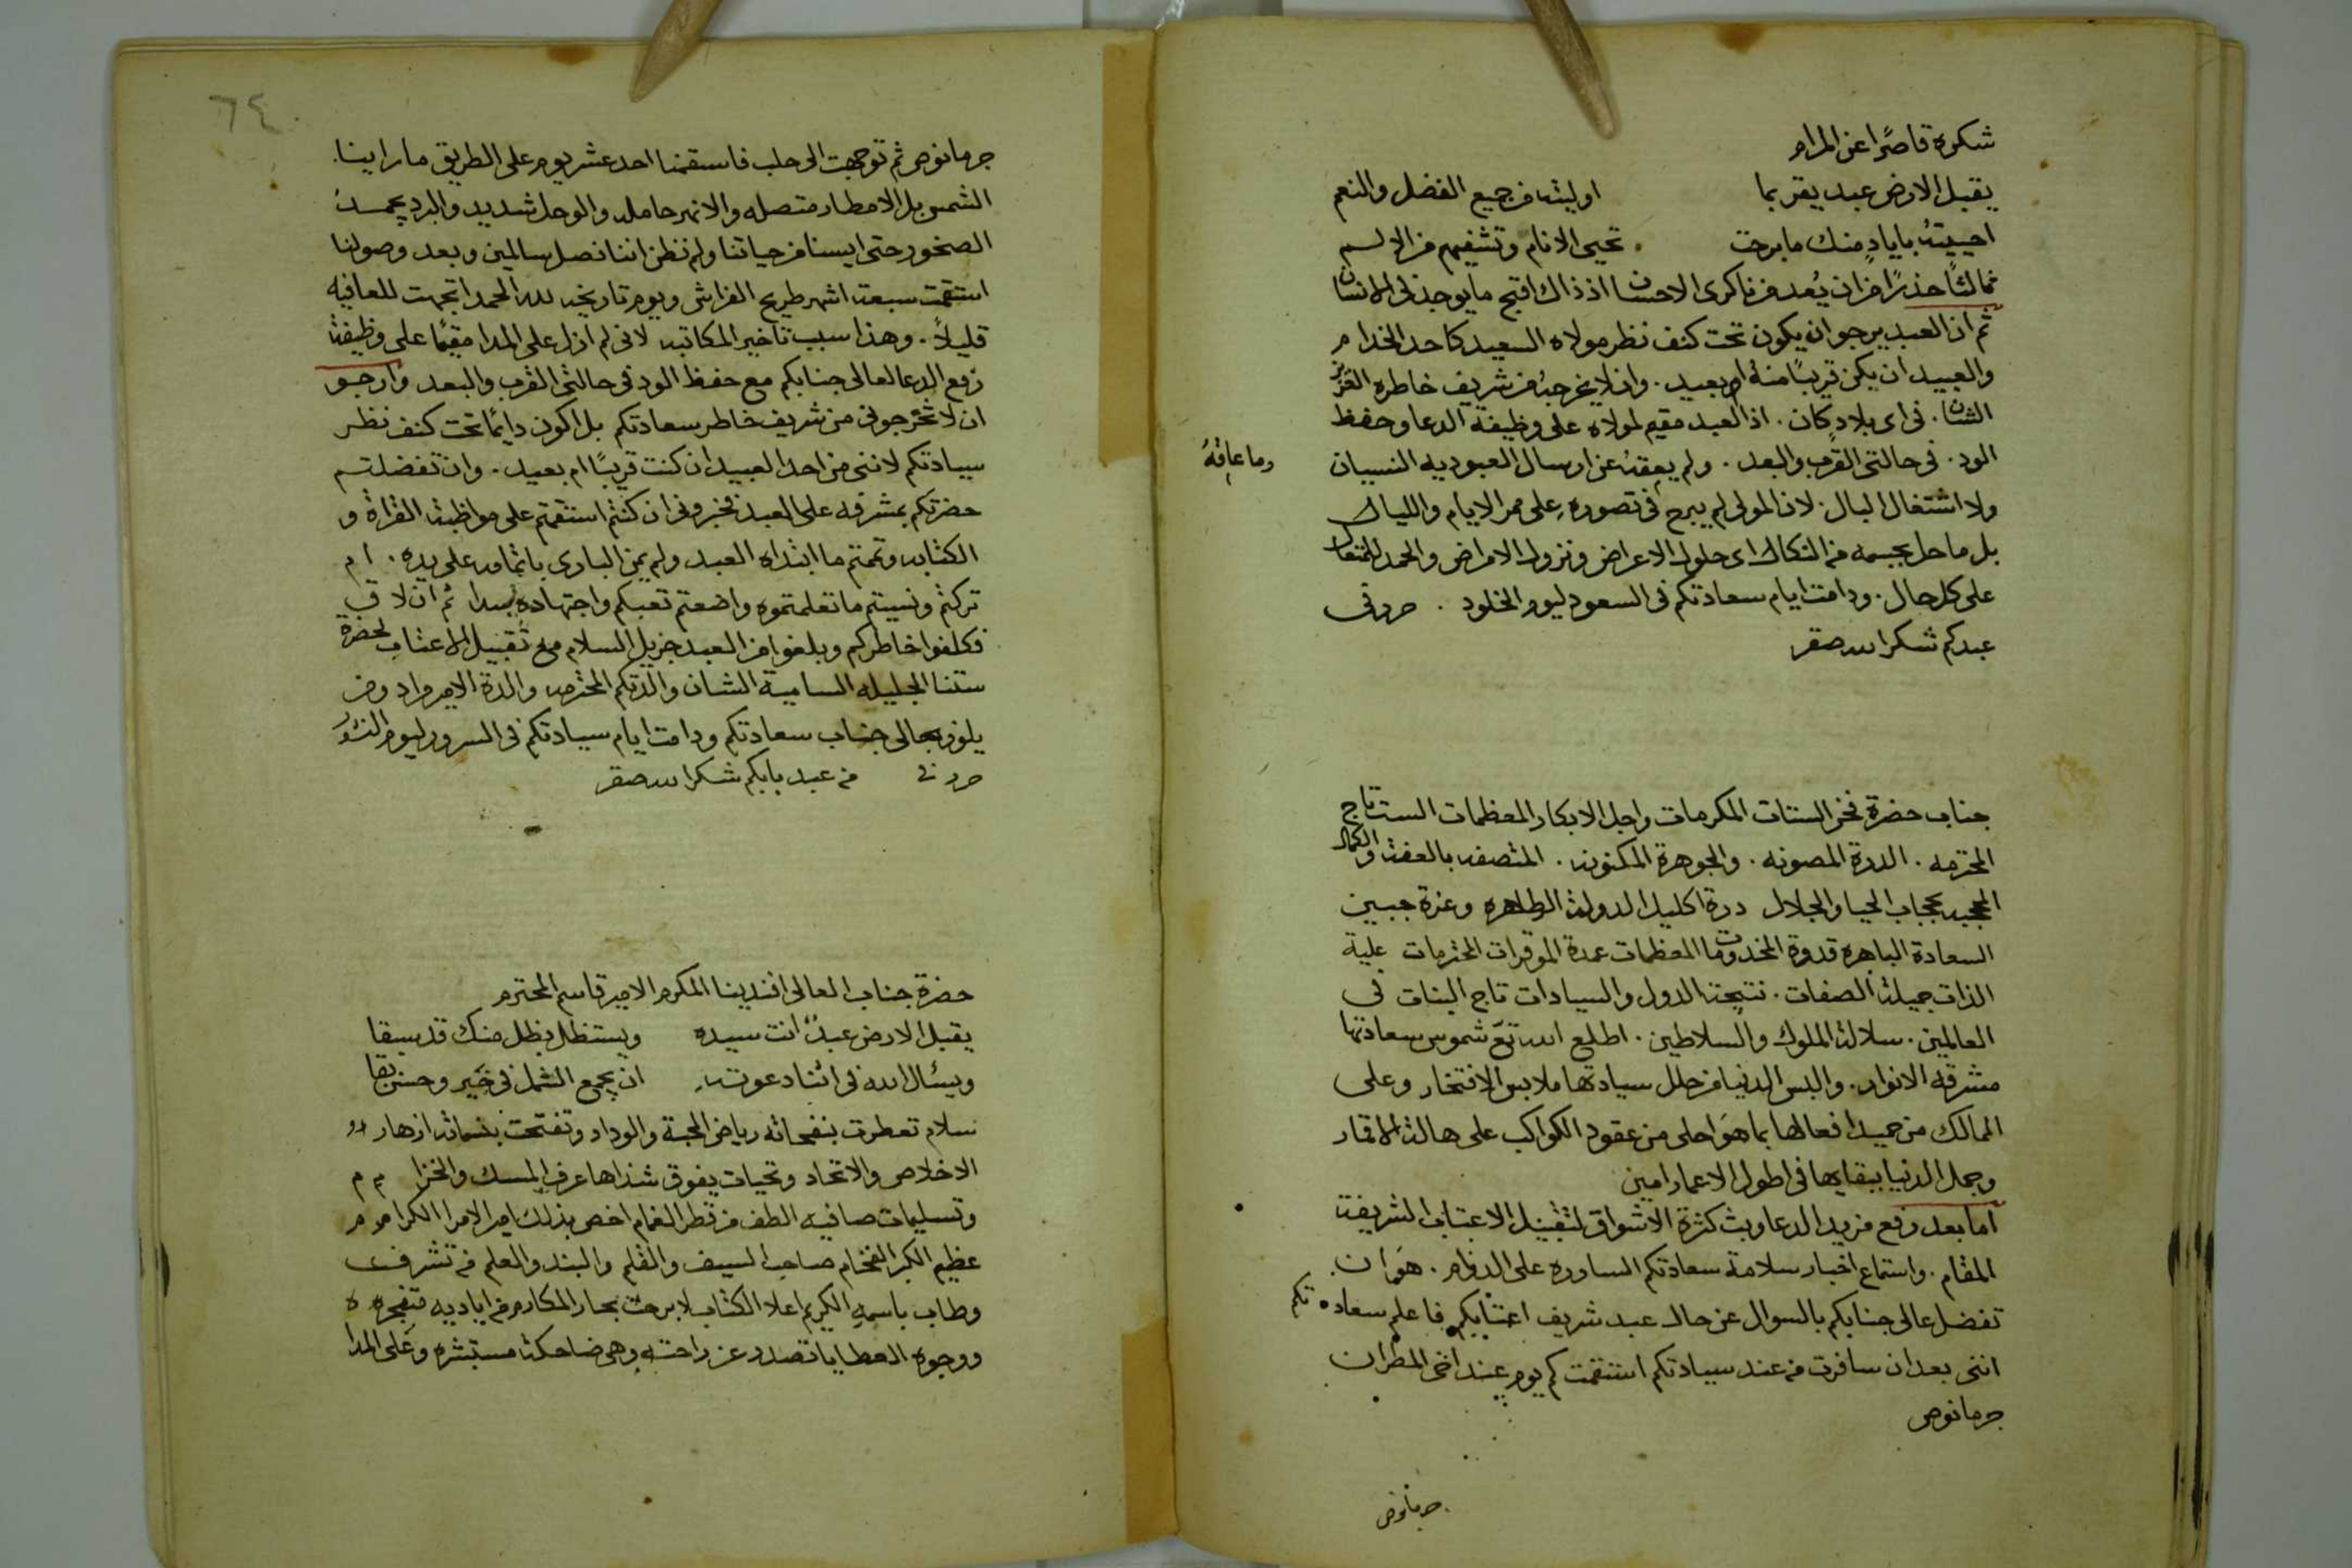 شكره قاصرًا عن المرام
يقبل الارض عبد يقر بما اوليته من جميع الفضل والنعم
احييته باياد منك ما برحت تحيي الانام وتشفيهم من الالم
ثم الثًا حذرًا من ان يُعد من ناكرى الاحسان اذ ذاك اقبح ما يوجد في الانسان
ثم ان العبد يرجو ان يكون تحت كنف نظر مولاه السعيد كاحد الخدام
والعبيد ان يكن قريبًا منه او بعيد. وان لا يخرجه من شريف خاطره العزيز
الشان. في اى بلاد كان. اذ العبد مقيم لمولاه على وظيفة الدعا وحفظ
الود. في حالتى القرب والبعد. ولم يعقه عن ارسال العبوديه النسيان
وما عاقهُ
ولا اشتغال البال. لان المولى لم يبرح في تصوره على ممر الايام والليال
بل ما حل بجسمه من النكال اى حلول الاعراض ونزول الامراض والحمد للمتعال
على كل حال. ودامت ايام سعادتكم في السعود ليوم الخلود. حرر في
عبدكم شكرالله صقر
جناب حضرة فخر الستات المكرمات واجل الابكار المعظمات الست تاج
المحترمه. الدرة المصونه. والجوهرة المكنونه. المتصفه بالعفة والكمال
المحجبه بحجاب الحيا والجلال درة اكليل الدولة الطاهره وغرة جبين
السعادة الباهره قدوة المخدومات المعظمات عمدة الموقرات المحترمات علية
الذات جميلة الصفات. نتيجة الدول والسيادات تاج البنات في
العالمين. سلالة الملوك والسلاطين. اطلع الله تع شموس سعادتها
مشرقه الانوار. والبس الدنيا من حلل سيادتها ملابس الافتخار وعلى
الممالك من حميد افعالها بما هوَ احلى من عقود الكواكب على هالة الاقمار
وجمل الدنيا ببقايها في اطول الاعمار امين
اما بعد رفع مزيد الدعا وبث كثرة الاشواق لتقبيل الاعتاب الشريفة
المقام. واستماع اخبار سلامة سعادتكم الساره على الدوام. هو ان
تفضل عالى جنابكم بالسوال عن حال عبد شريف اعتابكم فاعلم سعادتكم
اننى بعد ان سافرت من عند سيادتكم استقمت كم يوم عند اخى المطران
جرمانوص
جرمانوص
٦٤
جرمانوص ثم توجهت الى حلب فاستقمنا احد عشر يوم على الطريق ما راينا
الشمس بل الامطار متصله والانهر حامله والوحل شديد والبرد يجمد
الصخور حتى ايسنا من حياتنا ولم نظن اننا نصل سالمين وبعد وصولنا
استقمت سبعة اشهر طريح الفراش ويوم تاريخه لله الحمد اتجهت للعافيه
قليلاً. وهذا سبب تاخير المكاتبه لانى لم ازل على المدا مقيمًا على وظيفة
رفع الدعا لعالى جنابكم مع حفظ الود في حالتى القرب والبعد وارجو
ان لا تخرجونى من شريف خاطر سعادتكم بل اكون دايمًا تحت كنف نظر
سيادتكم لاننى من احد العبيد ان كنت قريبًا ام بعيد. وان تفضلتم
حضرتكم بمشرفه على العبد فخبرونى ان كنتم استقمتم على مواظبة القراة و
الكتابه وتممتم ما ابتداه العبد ولم يمن البارى باتمامه على يده. ام
تركتم ونسيتم ما تعلمتموه واضعتم تعبكم واجتهاده سدا ثم ان لاق
فكلفوا خاطركم وبلغوا من العبد جزيل السلام مع تقبيل الاعتاب لحضرة
ستنا الجليله السامية الشان والدتكم المحترمه والدة الامير مراد ومن
يلوذ بعالى جناب سعادتكم ودامت ايام سيادتكم في السرور ليوم النشور
حرر في من عبد بابكم شكرالله صقر
حضرة جناب العالى افندينا المكرم الامير قاسم المحترم
يقبل الارض عبدٌ انت سيده ويستظل بظل منك قد سبقا
ويسئال الله في اثنا دعوته ان يجمع الشمل في خير وحسن بقا
سلام تعطرت بنفحاته رياض المحبة والوداد وتفتحت بنسماته ازهار
الاخلاص والاتحاد وتحيات يفوق شذاها عرف المسك والخزام
وتسليمات صافيه الطف من قطر الغمام اخص بذلك امير الامرا الكرام
عظيم الكبر الفخام صاحب السيف والقلم والبند والعلم من تشرف
وطاب باسمه الكريم اعلا الكتاب لا برحت بحار المكارم من اياديه متفجره
ووجوه العطايا تصدر عن راحته وهى ضاحكة مستبشره وعَلى المدا